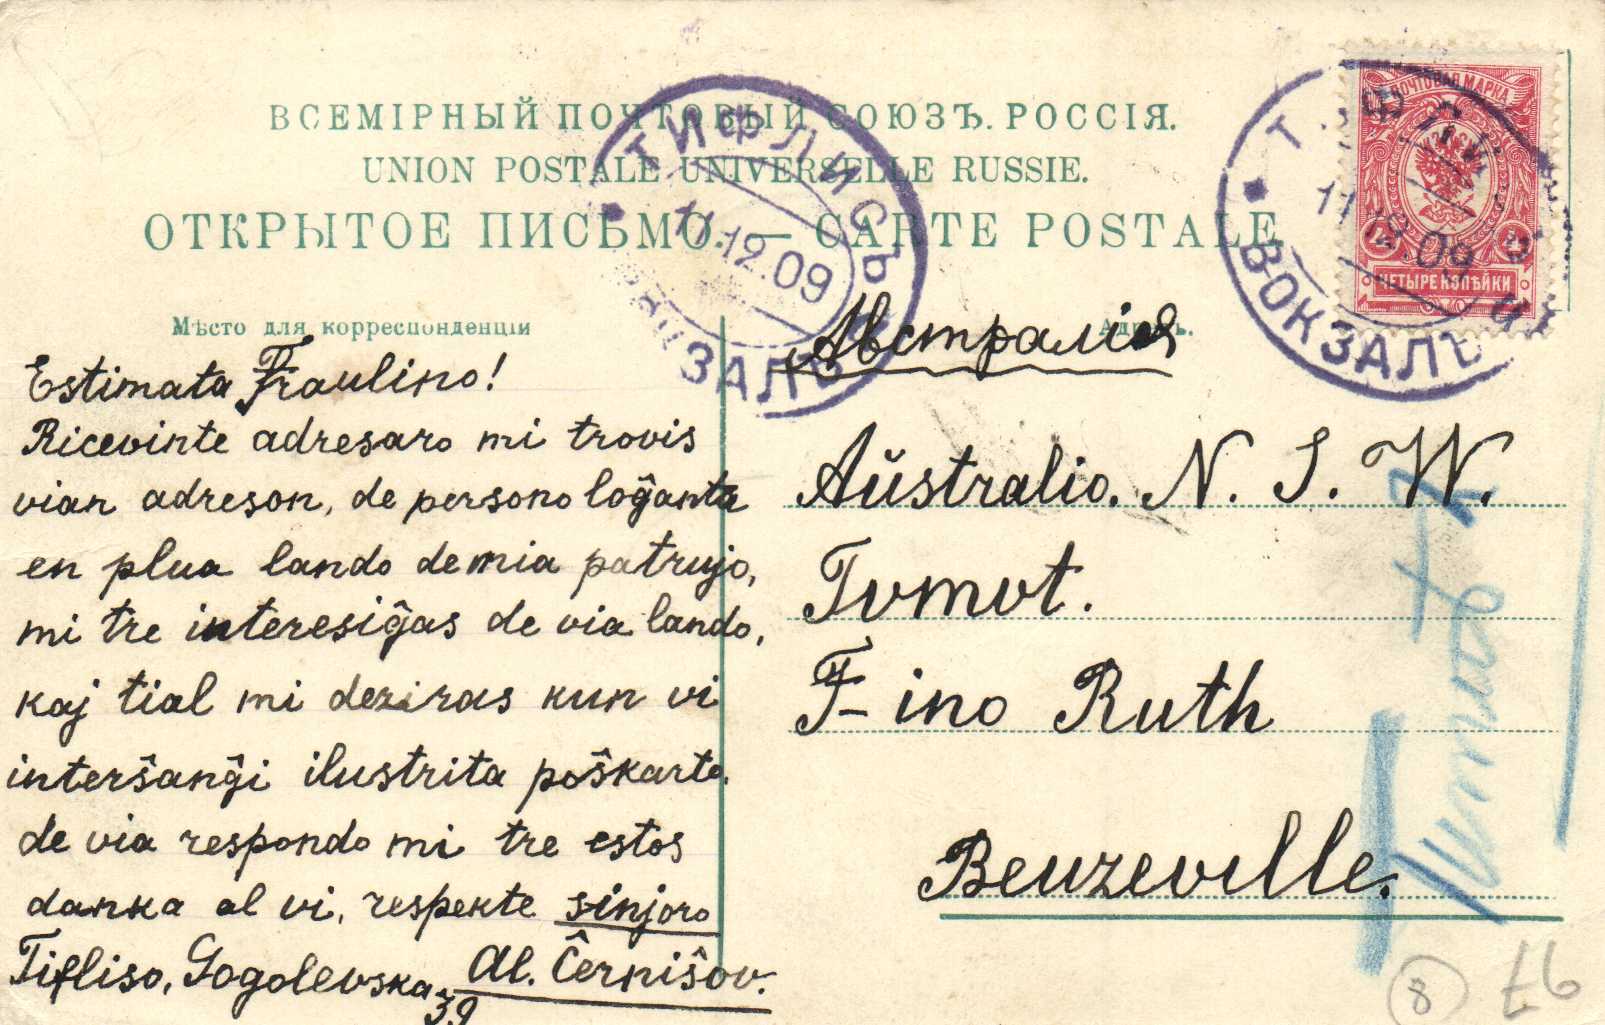 ВСЕМІРНЫЙ ПОЧТОВЫЙ СОЮЗЪ. РОССІЯ.
UNION POSTALE UNIVERSELLE RUSSIE.
ОТКРЫТОЕ ПИСЬМО. — CARTE POSTALE
ТИФЛИСЪ
11.12.09
ВОКЗАЛЪ
ПОЧТОВАЯ МАРКА
ЧЕТЫРЕ КОПѢЙКИ
11.12.09
ВОКЗАЛЪ
Мѣсто для корреспонденціи
Estimata Fraulino!
Ricevinte adresaro mi trovis
vian adreson, de persono loĝanta
en plua lando de mia patrujo,
mi tre interesiĝas de via lando,
kaj tial mi deziras kun vi
interŝanĝi ilustrita poŝkarto.
de via respondo mi tre estos
danka al vi, respekte sinjoro
Tifliso, Gogolevska 39 Al. Ĉerniŝov.
Австралія
Aŭstralio. N. S. W.
Tumut.
F-ino Ruth
Beuzeville.
Tumut
8
£6